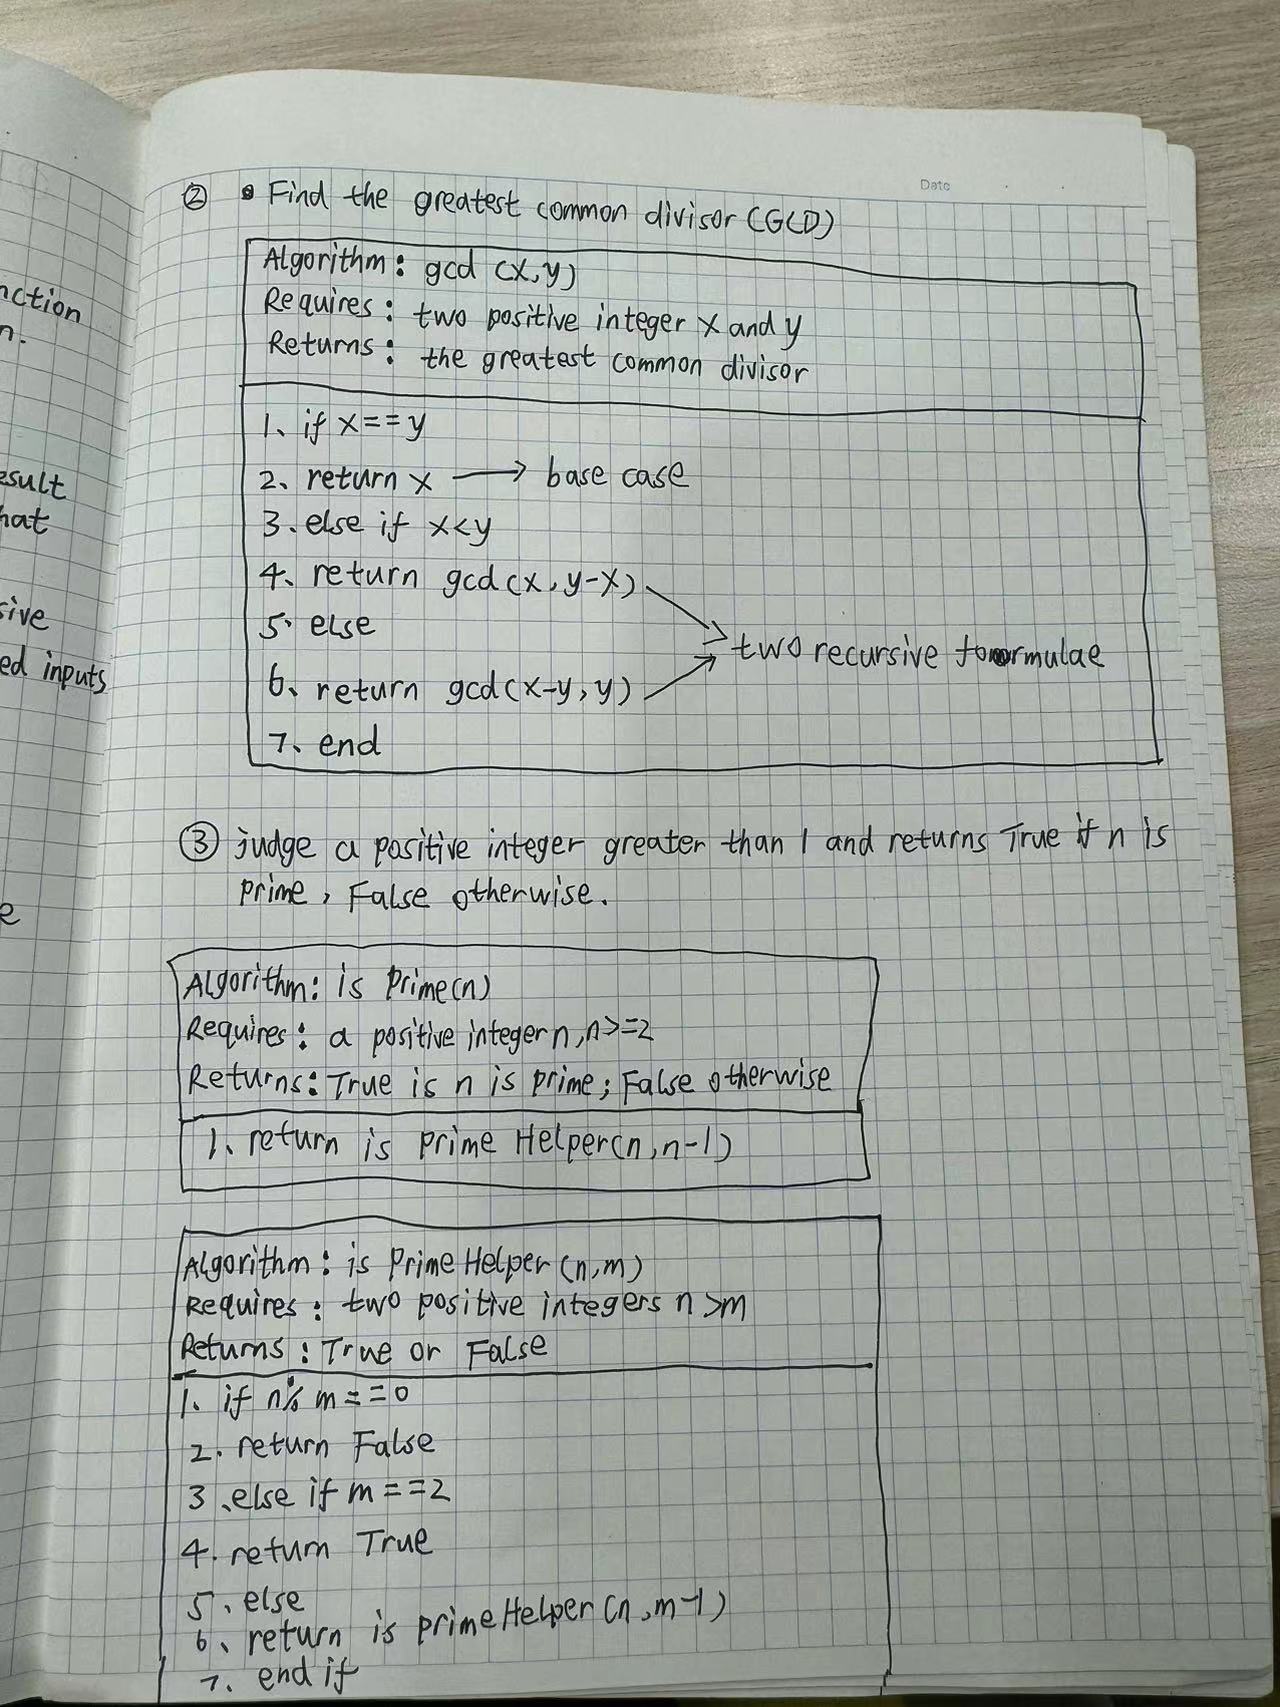 Date
② • Find the greatest common divisor (GCD)
Algorithm: gcd (x,y)
Requires: two positive integer x and y
Returns: the greatest common divisor
1、if x==y
2、return x → base case
3.else if x<y
4、return gcd(x,y-x)
5. else
two recursive formulae
6、return gcd(x-y,y)
7、end
③ judge a positive integer greater than 1 and returns True if n is
prime, False otherwise.
Algorithm: is Prime(n)
Requires: a positive integer n,n>=2
Returns: True is n is prime; False otherwise
1、return is prime Helper(n,n-1)
Algorithm: is Prime Helper (n,m)
Requires: two positive integers n>m
Returns: True or False
1. if n%m==0
2. return False
3、else if m==2
4. return True
5、else
6、return is primeHelper(n,m-1)
7. end if
nction
n.
esult
hat
sive
ed inputs
e